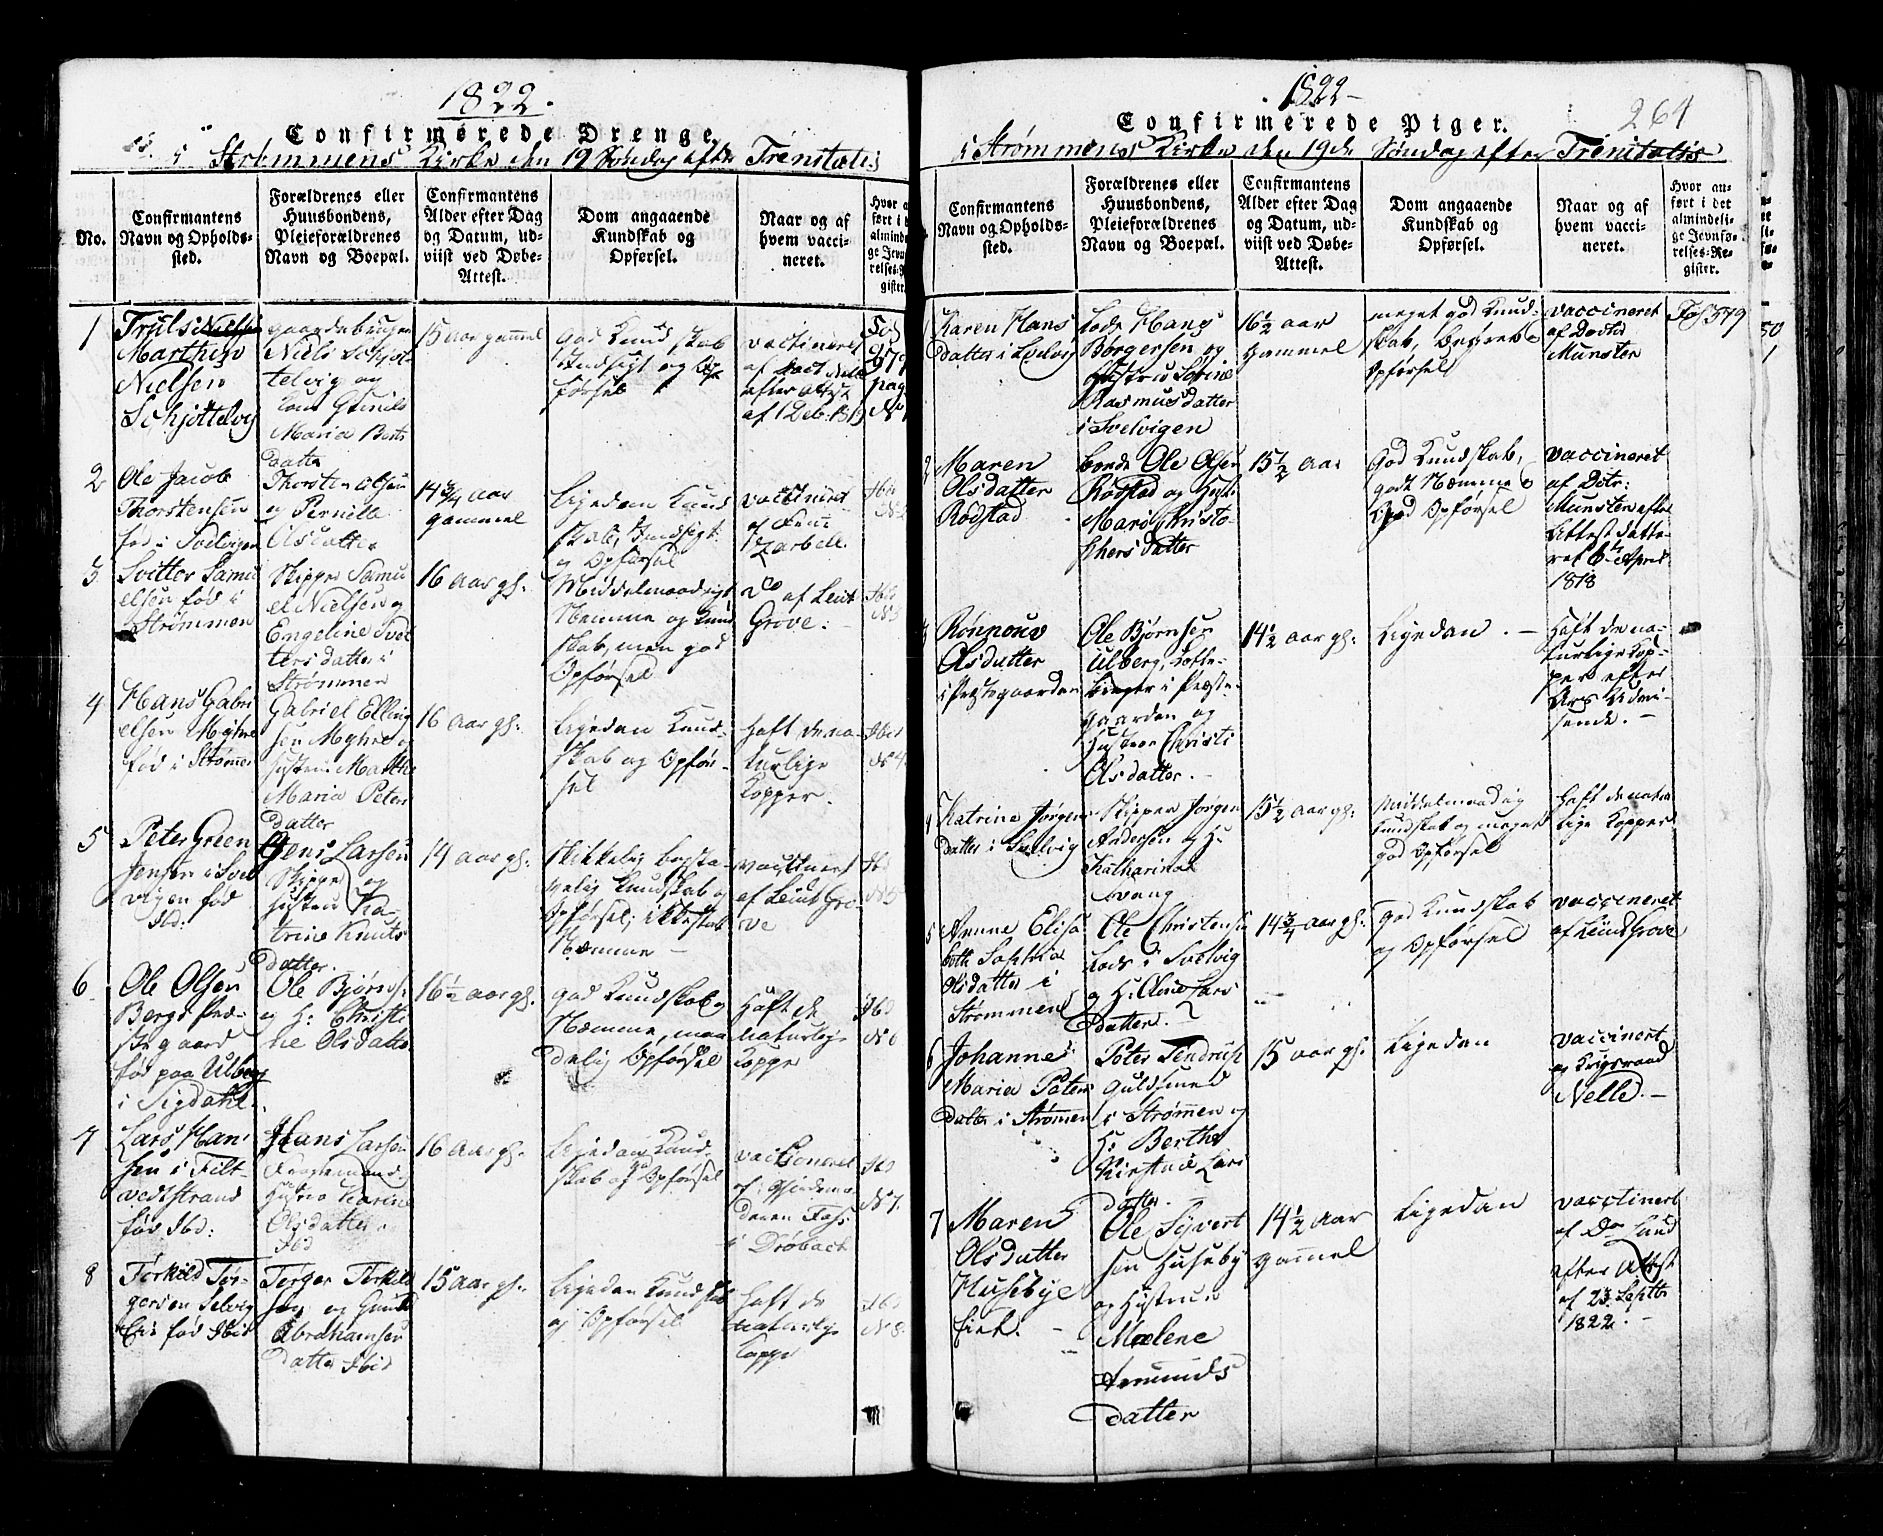 1822.
Confirmerede Drenge.
i Strømmens Kirke den 19 Søndag efter Trinitatis
No.
Confirmantens
Navn og Opholds-
sted.
Forældrenes eller
Huusbondens,
Pleieforældrenes
Navn og Boepæl.
Confirmantens
Alder efter Dag
og Datum, ud-
viist ved Døbe-
Attest.
Dom angaaende
Kundskab og
Opførsel.
Naar og af
hvem vacci-
neret.
Hvor a
ført i
almind
ge Jevn
relses-
gister.
1
Truls Nielsen
Marthin
Nielsen
Schjottelvig
gaardebruger
Niels Schjot-
telvig og
Kone Gunild
Maria Berts
Datter
15 aar gammel
god Kundskab
Indsigt og Op-
førsel
vaccineret
2
Ole Jacob
Thorstensen
fød i Svelvigen
Thorsten Olsen
og Pernille
Olsdatter
14 3/4 aar
gammel
Ligedan Kund
skab, Indsigt
og Opførsel
vaccineret
af Frue
Zarbell.
3
Svitter Samu
elsen fød i
Strømmen
Skipper Samu
el Nielsen og
Engeline Svit
tersdatter i
Strømmen
16 aar gl:
Middelmaadigt
Nemme og Kund
skab, men god
Opførsel
Do af Leut
Grove:
Ibid
N 3
4
Hans Gabri
elsen Myhre
fød i Strømmen
Gabriel Elling
sen Myhre og
Hustru Marthe
Maria Peters
Datter
16 aar gl:
Ligedan Kund-
skab og Opfør-
sel
Haft de na-
turlige
Kopper.
Ibid
N 4
5
Peter Green
Jensen i Svel
vigen fød
Ibd:
Jens Larsen
Skipper og
Hustru Ka-
trine Knuts
Datter.
14 aar gl:
Skikkelig bogsta-
velig Kundskab og
Opførsel; ikke stor
Nemme —
vaccineret
af Leut Gro-
ve
Ibd
N 5
6
Ole Olsen
Berg Præ-
stegaard
fød paa Ulberg
i Sigdahl.
Ole Bjørns:
og H: Christi
ne Olsdatter
16 1/2 aar gl:
god Kundskab og
Nemme, maa
delig Opførsel
Haft de
naturlige
Kopper
Ibd
N 6
7
Lars Han
sen i Filt-
vedtstrand
fød Ibd:
Hans Larsen
Hustru Karine
Olsdatter
Ibd
16 aar gl.
Ligedan Kund-
skab og Opførsel
vaccineret
i Drøbach
Ibd
N 7.
8
Torkild Tor-
gersen Selvig
Eie fød Ibid
Torger Torkild
sen og Gunild
Abrahamsen
Datter Ibid
15 aar gl.
Ligedan Kundskab
og Opførsel
Haft de
naturlige
Kopper
Ibd
N 8.
1822—
264
Confirmerede Piger.
i Strømmens Kirke den 19de Søndag efter Trinitatis
Confirmantens
Navn og Opholds-
sted.
Forældrenes eller
Huusbondens,
Pleieforældrenes
Navn og Boepæl.
Confirmantens
Alder efter Dag
og Datum, ud-
viist ved Døbe-
Attest.
Dom angaaende
Kundskab og
Opførsel.
Naar og af
hvem vacci-
neret.
Hvor an-
ført i det
almindeli-
ge Jevnfø-
relses-Re-
gister.
1
Karen Hans
datter i Svelvig
Lods Hans
Børgersen og
Hustru Sorine
Rasmusdatter
i Svelvigen
16 1/2 aar
gammel
meget god Kund-
skab,
Opførsel
vaccineret
af Doctor
Munster
Fol 579
2
Maren
Olsdatter
Rødstad
bonde Ole Olsen
Rødstad og Hust.
Mari Christo-
phersdatter
15 1/2 aar
God Kundskab,
godt Nemme &
god Opførsel
vaccineret
af Dctr:
Munster efter
Attest date-
ret 6te April
1818
3
Rønnouv
Olsdatter
i Præstegaarden
Ole Bjørnsen
Ulberg,
i Præste-
gaarden og
Hustrue Christi
Olsdatter. -
14 1/2 aar gl:
Ligedan. —
Haft de na-
turlige Kop-
per efter
Ars Udvi-
sende. —
4
Katrine Jørgens
datter i Svelvig
Skipper Jørgen
Andersen og H.
Katharina
Svang
15 1/2 aar gl:
Middelmaadig
Kundskab og meget
god Opførsel
Haft de natur
lige Kopper
5
Anne Elisa
beth Sophia
Olsdatter i
Strømmen
Ole Christensen
Lods i Svelvig
og H: Aline Lars
Datter.
14 3/4 aar gl.
God Kundskab
og Opførsel
vaccineret
af Leut Grove
6
Johanne
Maria Peters
datter i Strømmen
Peter Tendrup
Guldsmed
i Strømmen og
H: Berthe
Kirstine Lars
Datter. -
15 aar gl.
Ligedan
vaccinert
af Krigsraad
Nelle. —
7
Maren
Olsdatter
Husebye
Eiet. —
Ole Syvert
sen Huseby
og Hustrue
Malene
Amunds
Datter
14 1/2 aar
gammel
Ligedan
vaccinert
af Dr Lund
efter Attest
af 23 Septbr
1822. —